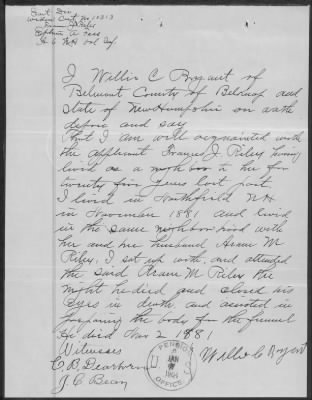 Widow Cert No 10313
Co G NH Vol Inf
I Willie C Bryant of
Belmont County of Belknap and
State of New Hampshire on oath
depose and say
That I am well acquainted with
the applicant Frances J. Riley having
lived as a neighbor to her for
twenty five years last past.
I lived in Northfield NH
in November 1881 and lived
in the same neighborhood with
her and her husband Aram M
Riley, I sat up with, and attended
the said Aram M Riley the
night he died and closed his
Eyes in death, and assisted in
preparing the body for the funeral
He died Nov 2 1881
Witnesses
Willie C Bryant
C. B. Dearborn
J. C. Bean
PENSION
U S
JAN
OFFICE